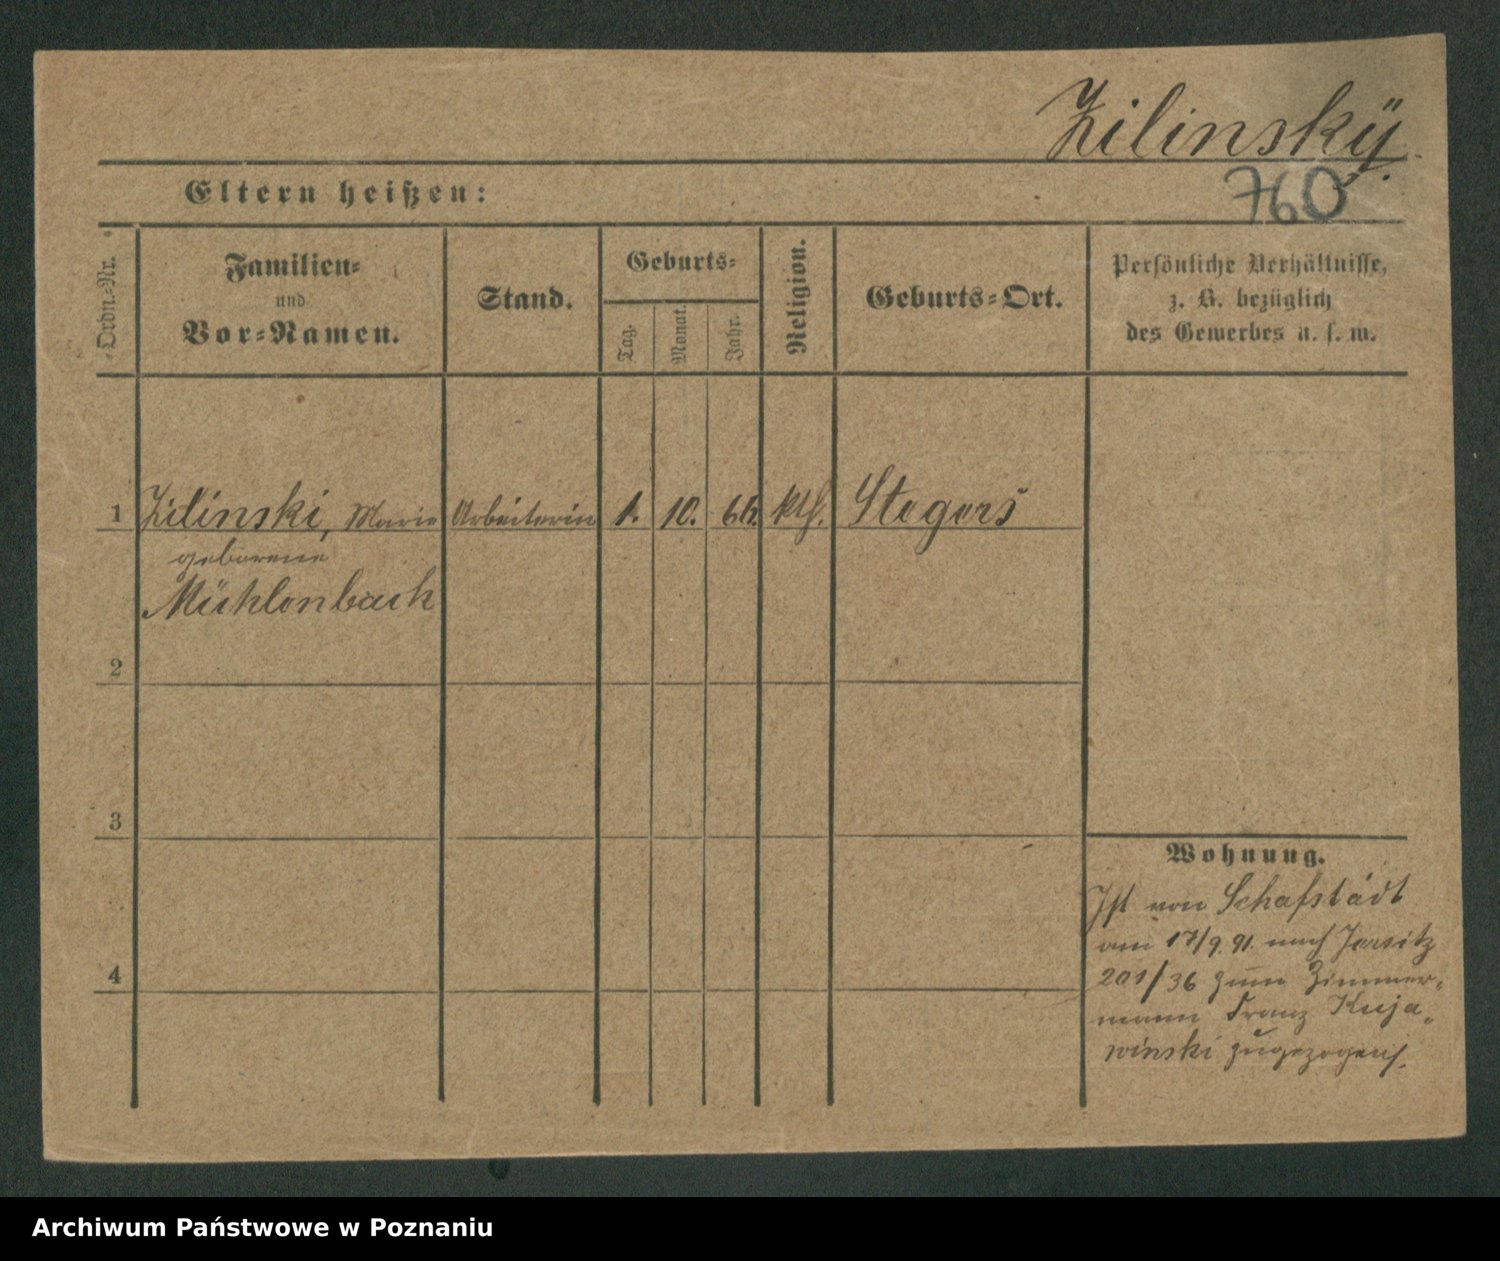 Zilinskÿ.
760
Eltern heißen:
Ordn.-Nr.
Familien-
und
Vor-Namen.
Stand.
Geburts-
Tag.
Monat.
Jahr.
Religion.
Geburts-Ort.
Persönliche Verhältnisse,
z. B. bezüglich
des Gewerbes u. s. w.
1 Zilinski, Marie Arbeiterin 1. 10. kth. Stegers
geborene
Mühlenbach
2
3
4
Wohnung.
Ist von Schafstädt
am 17/9. 91. nach Jersitz
201/36 zum Zimmer-
mann Franz Kuja-
winski zugezogen.